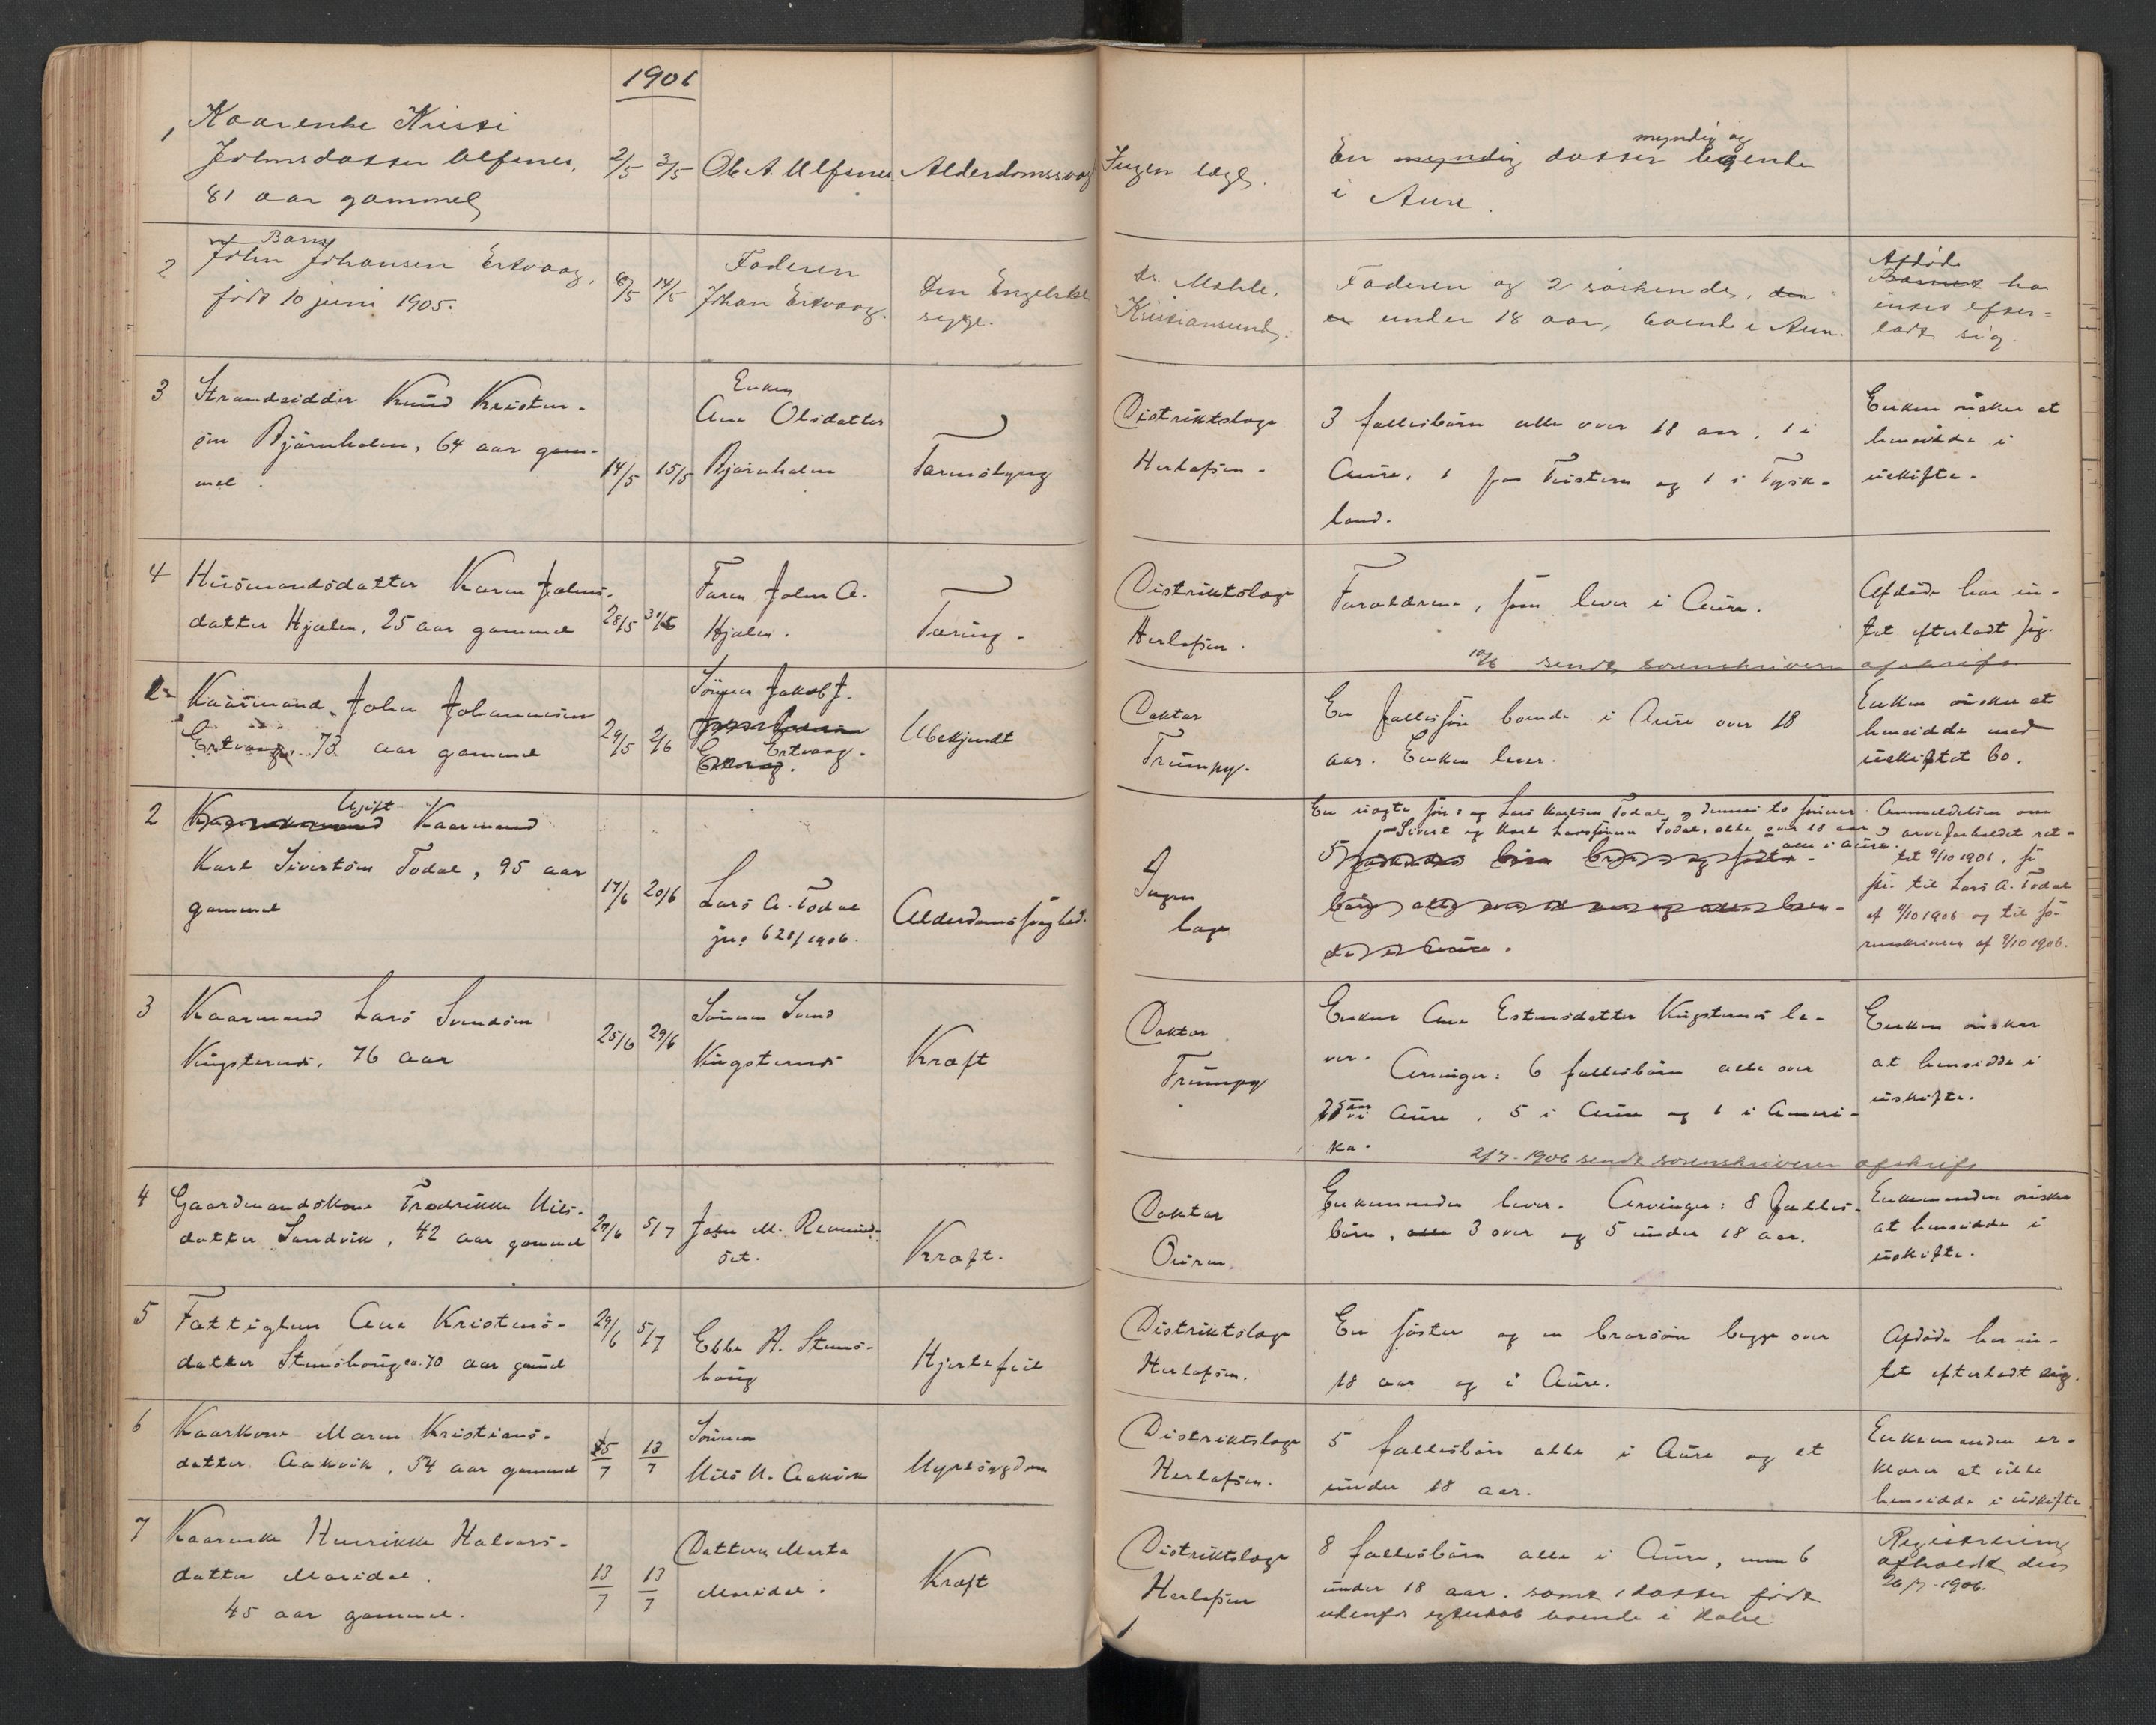 1906
1 Kaarenke Kirsti
Johnsdatter Ulfsnes,
81 aar gammel
2/5 3/5 Ole A. Ulfsnes Alderdomssvag Ingen læge.
En myndig datter myndig og boende
i Aure.
2 Barn
John Johansen Ertvaag,
født 10 juni 1905.
8/5 14/5 Faderen
Johan Ertvaag.
Den Engelske
syge.
Dr. Mohle,
Kristiansund.
Faderen og 2 søskende, den
er under 18 aar, boende i Aure.
Afdøde
Barnet har
intet efter=
ladt sig.
3 Strandsidder Knud Kristen-
sen Bjørnholm, 64 aar gam-
mel
14/5 15/5 Enken
Ane Olsdatter
Bjørnholm
Tarmslyng
Distriktslæge
Herlofsen.
3 fællesbørn alle over 18 aar, 1 i
Aure, 1 paa Tustern og 1 i Tysk-
land.
Enken ønsker at
hensidde i
uskifte.
4 Husmandsdatter Karen Johns-
datter Hjælen, 25 aar gammel
28/5 31/5 Faren John A.
Hjælen.
Tæring.
Distriktslæge
Herlofsen.
Forældrene, som lever i Aure.
Afdøde har in-
tet efterladt sig.
10/6 sendt sorenskriveren afskrift
1 Kaarmand John Johannesen
Ertvaag 73 aar gammel
29/5 2/6 Sønnen Jakob J.
Ertvaag.
Ubekjendt
Doktor
Trumpy.
En fællessøn boende i Aure over 18
aar. Enken lever.
Enken ønsker at
hensidde med
uskiftet bo.
2 Ugift
Kaarmand
Karl Sivertsen Todal, 95 aar
gammel
17/6 20/6 Lars A. Todal
jn. 628/1906.
Alderdomssvaghed.
Ingen
læge
En uægte søn: Lars Karlsen Todal og dennes to sønner
Sivert og Karl Larssønner Todal, alle over 18 aar og
alle i Aure.
Anmeldelsen om
arveforholdet ret-
tet 9/10 1906, se
skr. til Lars A. Todal
af 9/10 1906 og til so-
renskriveren af 9/10 1906.
3 Kaarmand Lars Svendsen
Kingsternes, 76 aar
25/6 29/6 Sønnen Svend
Kingsternes
Kræft
Doktor
Trumpy
Enken Ane Estensdatter Kingsternes le-
ver. Arvinger: 6 fællesbørn alle over
18 aar i Aure, 5 i Aure og 1 i Ameri-
ka.
2/7-1906 sendt sorenskriveren afskrift
Enken ønsker
at hensidde i
uskifte.
4 Gaardmandskone Fredrikke Nils-
datter Sandvik, 42 aar gammel
27/6 5/7 John M.
Kræft.
Doktor
Enkemanden lever. Arvinger: 8 fælles-
børn, alle 3 over og 5 under 18 aar.
Enkemanden ønsker
at hensidde i
uskifte.
5 Fattiglem Ane Kristens-
datter Stenshaug ca. 70 aar gammel
29/6 5/7 Ebbe H. Stens-
haug
Hjertefeil
Distriktslæge
Herlofsen.
En søster og en brorsøn begge over
18 aar og i Aure.
Afdøde har in-
tet efterladt sig.
6 Kaarkone Maren Kristians-
datter Aakvik, 54 aar gammel
5/7 13/7 Sønnen
Nils N. Aakvik
Nyresygdom
Distriktslæge
Herlofsen.
5 fællesbørn alle i Aure og et
under 18 aar.
Enkemanden er-
klærer at ville
hensidde i uskifte
7 Kaarenke Henrikke Halvors-
datter Moridal.
45 aar gammel.
13/7 13/7 Datteren Marta
Moridal.
Kræft
Distriktslæge
Herlofsen
8 fællesbørn alle i Aure, men 6
under 18 aar. samt 1 datter født
udenfor egteskab boende i Halse
Registrering
afholdt den
26/7-1906.